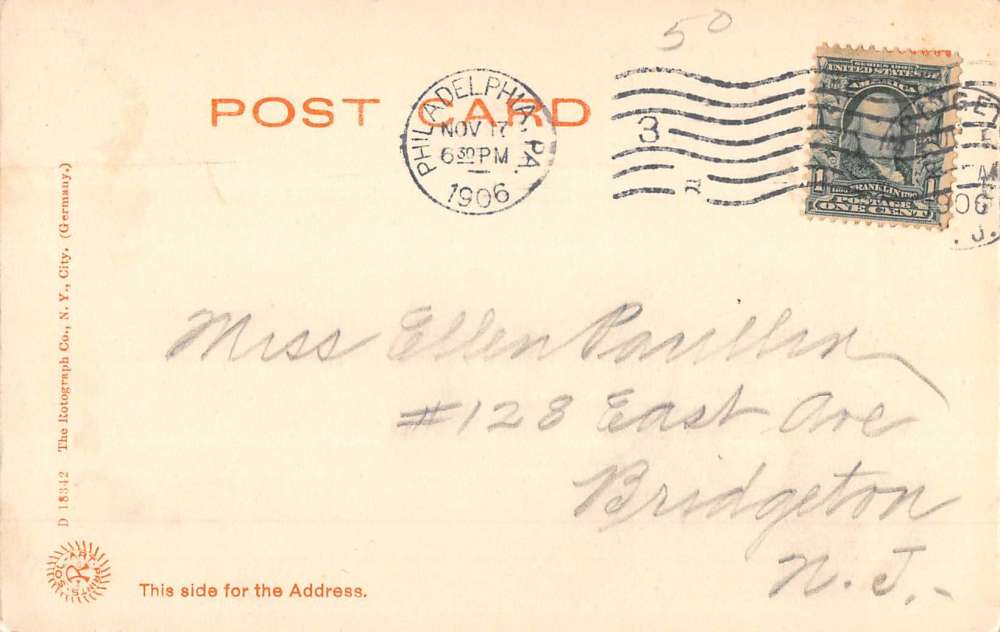 50
POST CARD
PHILADELPHIA, PA.
NOV 17
6 30 PM
1906
3
SERIES 1902
UNITED STATES OF
AMERICA
FRANKLIN
1 1
POSTAGE
ONE CENT
1906
. J.
Miss Ellen
#128 East Ave
Bridgeton
N. J.
D 18342 The Rotograph Co., N. Y., City. (Germany.)
SOL-ART PRINTS
R
This side for the Address.